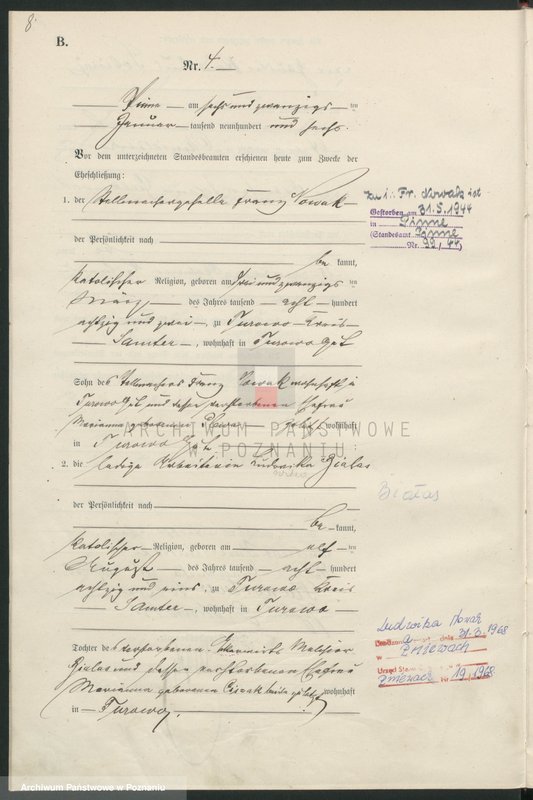 8
B.
Nr. 4.
Pinne am sechs und zwanzigs ten
Januar tausend neunhundert und sechs.
Vor dem unterzeichneten Standesbeamten erschienen heute zum Zwecke der
Eheschließung:
1. der Stellmachergeselle Franz Nowak
der Persönlichkeit nach
be kannt,
katolischer Religion, geboren am drei und zwanzigs ten
März des Jahres tausend acht hundert
achtzig und zwei, zu Turowo Kreis
Samter, wohnhaft in Turowo Gut
Sohn des Stellmachers Franz Nowak wohnhaft in
Turowo Gut und dessen verstorbenen Ehefrau
Marianna geborenen zuletzt wohnhaft
in Turowo Gut
2. die ledige Arbeiterin Ludowika Bialas
der Persönlichkeit nach
be kannt,
katolischer Religion, geboren am elf ten
August des Jahres tausend acht hundert
achtzig und eins, zu Turowo Kreis
Samter, wohnhaft in Turowo
Tochter des verstorbenen Melchior
Bialas und dessen verstorbenen Ehefrau
Marianna geborenen beide zuletzt wohnhaft
in Turowo.
Zu 1. Fr. Nowak ist
Gestorben am 31.5.1944
in Pinne
(Standesamt Pinne
Nr. 99/44)
Białas
Ludwika Nowak
dnia 31.3.1968
w Pniewach
Urząd Stanu
Pniewach Nr 19/1968
ARCHIWUM PAŃSTWOWE
W POZNANIU
Archiwum Państwowe w Poznaniu